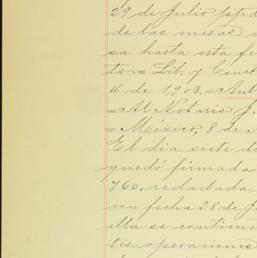 29 de Julio ppdo
de las mesas
sa hasta esta fe
to = Lib. y Const.
4 de 1,903. = Aut
= Al Notario J.
= México, 8 de
El dia siete de
quedó firmada
760, redactada
con fecha 28 de J
ella se contiene
tes operaciones